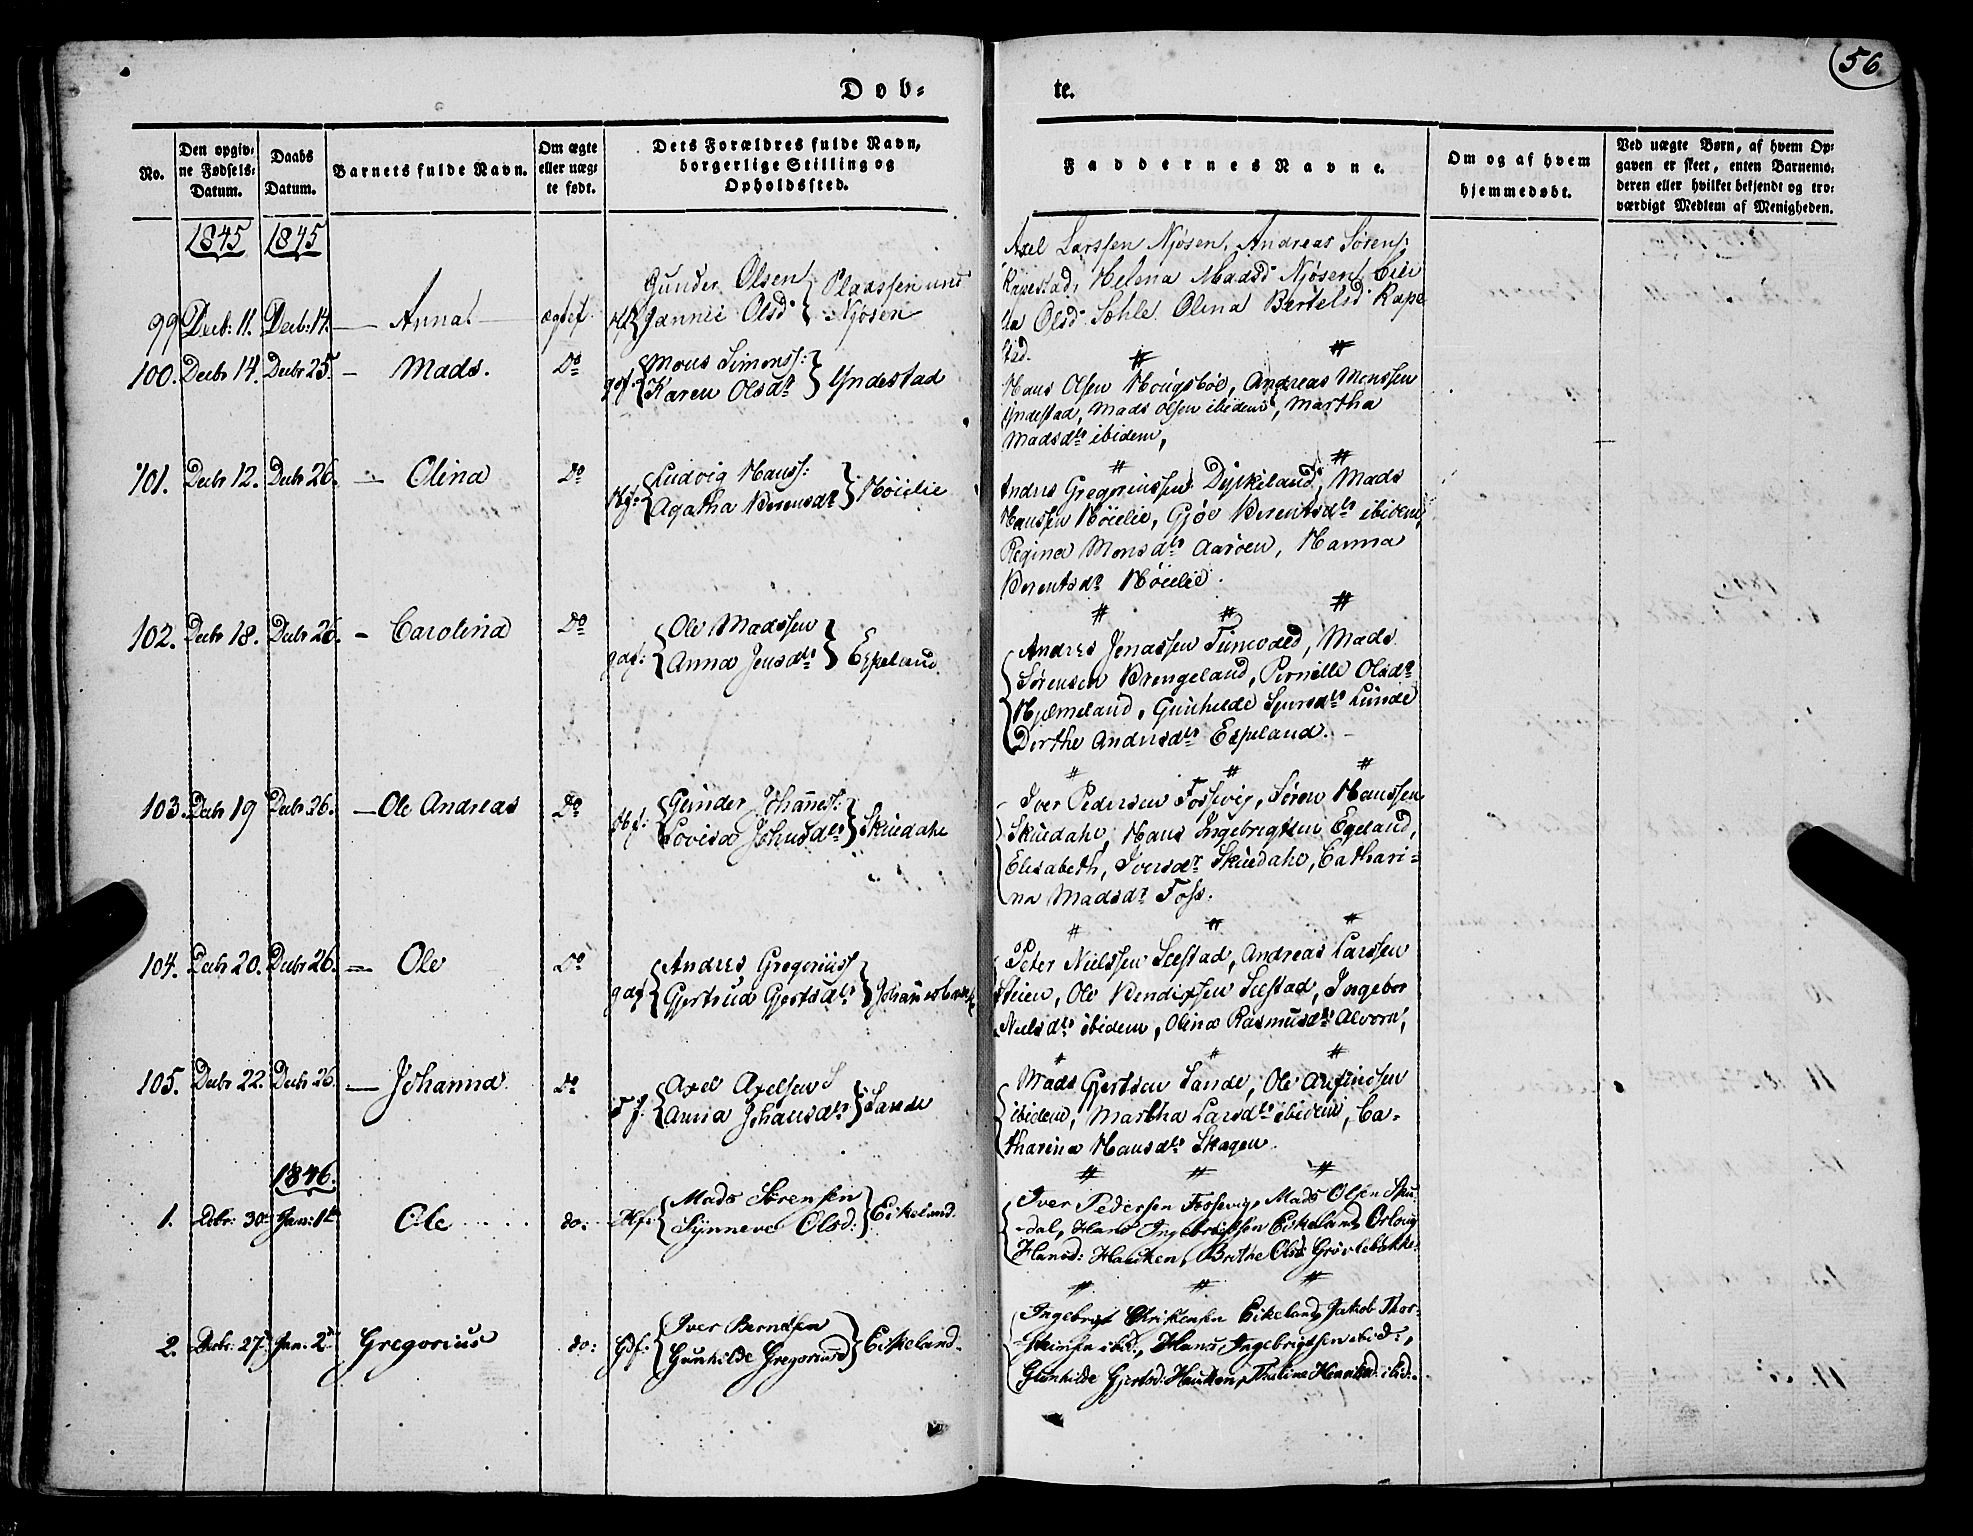 56
Døb-
te.
No.
Den opgiv-
ne Fødsels-
Datum.
Daabs
Datum.
Barnets fulde Navn.
Om ægte
eller uæg-
te født.
Dets Forældres fulde Navn,
borgerlige Stilling og
Opholdssted.
Faddernes Navne.
Om og af hvem
hjemmedøbt.
Ved uægte Børn, af hvem Op-
gaven er skeet, enten Barnemo-
deren eller hvilket bekjendt og tro-
værdigt Medlem af Menigheden.
1845 1845
99 Decb: 11. Decb: 14. — Anna.
Gunder Olsen
Olsd Njøsen
Axel Larssen Njøsen, Andreas Sørens:
Rapestad, Helena Madsd Njøsen,
Olsd Sæhle Olina Bertelsd Rape
stad.
100. Decbr 14. Decbr 25. — Mads. Do
gdf. Mons Simonss:
Karen Olsdr Yndestad
Hans Olsen Hougsbøe, Andreas Monssen
Yndestad, Mads Olsen ibidem, Martha
Madsdtr ibidem,
101. Decbr 12. Decbr 26. — Olina Do
Ludvig Hanss:
Agatha Berensdr Høielie
Andres Gregoriussen Dyskeland, Mads
Hanssen Høielie, Gjøe Berentsdtr ibidem,
Regina Monsdtr Aarøen, Hanna
Berentsdr Høielie.
102. Decbr 18. Decbr 26. — Carolina Do
gdf: Ole Madssen
Anna Jensdtr Espeland.
Andres Jonassen Tunvald, Mads
Sørensen Brengeland, Pernille Olsdr
Hjelmeland, Gunhilde Lunde
Dorthe Andersdtr Espeland. —
103. Decbr 19 Decbr 26. — Ole Andreas Do
Hf: Gunder Johannes:
Lovisa Johnsdtr Skuedahl
Iver Pedersen Fossevig, Søren Hanssen
Skuedahl, Hans Ingebrigtsen Egeland,
Elisabeth, Iversdr Skuedahl, Cathari-
na Madsdr Foss.
104. Decbr 20. Decbr 26. — Ole Do
gdf Andres Gregoriuss
Gjertrud Gjertsdtr
Peter Nielssen Seestad, Andreas Larssen
Steien, Ole Bendixsen Seestad, Ingebor
Nielsdtr ibidem, Olina Rasmusdtr Alvora,
105. Decbr 22. Decbr 26. — Johanna. Do
Axel Axelsen
Anna Johansdtr Sande
Mads Gjertsen Sande, Ole Arfindsen
ibidem, Martha Larsdtr ibidem, Ca-
tharina Hansdtr Skagen.
1846.
1. Dcbr: 30te Jan: 1te Ole do:
Hf: Mads Sørensen
Synneve Olsd: Eikeland.
Iver Pedersen Fossevig, Mads Olsen Sku-
dal, Hans Ingebrigtsen Eikeland,
Hansd: Hauken, Brithe Olsd Grøvlebakke.
2. Decbr: 27 Jan. 2 Gregorius do:
Gdf: Iver Berndsen
Gunhilde Gregoriusd Eikeland.
Ingebrigt Christensen Eikeland, Jakob Thor-
ibid:, Hans Ingebrigtsen ibid:,
Gunhilde Gjertsd: Hauken, Henriksd: ibid: